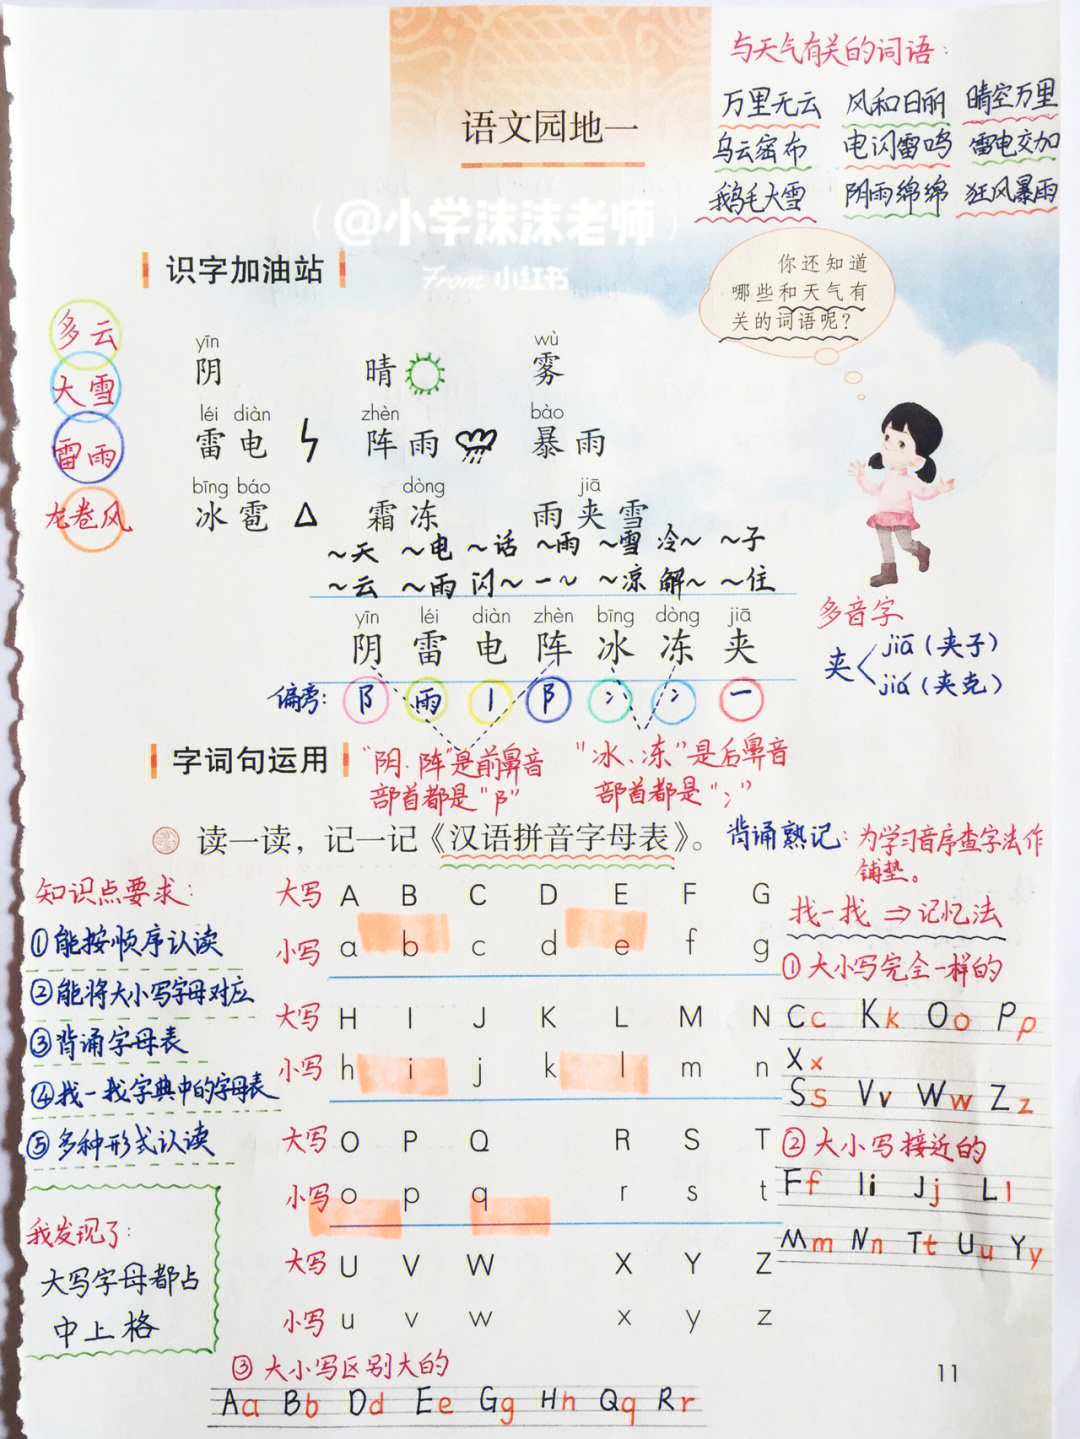 与天气有关的词语：
万里无云 风和日丽 晴空万里
乌云密布 电闪雷鸣 雷电交加
鹅毛大雪 阴雨绵绵 狂风暴雨
语文园地一
（@小学沫沫老师）
From 小红书
识字加油站
你还知道
哪些和天气有
关的词语呢？
多云
大雪
雷雨
龙卷风
yīn wù
阴 晴 雾
léi diàn zhèn bào
雷电 阵雨 暴雨
bīng báo dòng jiā
冰雹 霜冻 雨夹雪
～天 ～电 ～话 ～雨 ～雪 冷～ ～子
～云 ～雨 闪～ 一～ ～凉 解～ ～住
yīn léi diàn zhèn bīng dòng jiā
阴 雷 电 阵 冰 冻 夹
偏旁： 阝 雨 丨 阝 冫 冫 一
多音字
夹 jiā（夹子）
jiá（夹克）
字词句运用
“阴、阵”是前鼻音
部首都是“阝”
“冰、冻”是后鼻音
部首都是“冫”
读一读，记一记《汉语拼音字母表》。
背诵熟记：为学习音序查字法作
铺垫。
知识点要求：
①能按顺序认读
②能将大小写字母对应
③背诵字母表
④找一找字典中的字母表
⑤多种形式认读
我发现了：
大写字母都占
中上格
大写 A B C D E F G
小写 a b c d e f g
大写 H I J K L M N
小写 h i j k l m n
大写 O P Q R S T
小写 o p q r s t
大写 U V W X Y Z
小写 u v w x y z
找一找 ⇒ 记忆法
①大小写完全一样的
Cc Kk Oo Pp
Xx
Ss Vv Ww Zz
②大小写接近的
Ff Ii Jj Ll
Mm Nn Tt Uu Yy
③大小写区别大的
Aa Bb Dd Ee Gg Hh Qq Rr
11